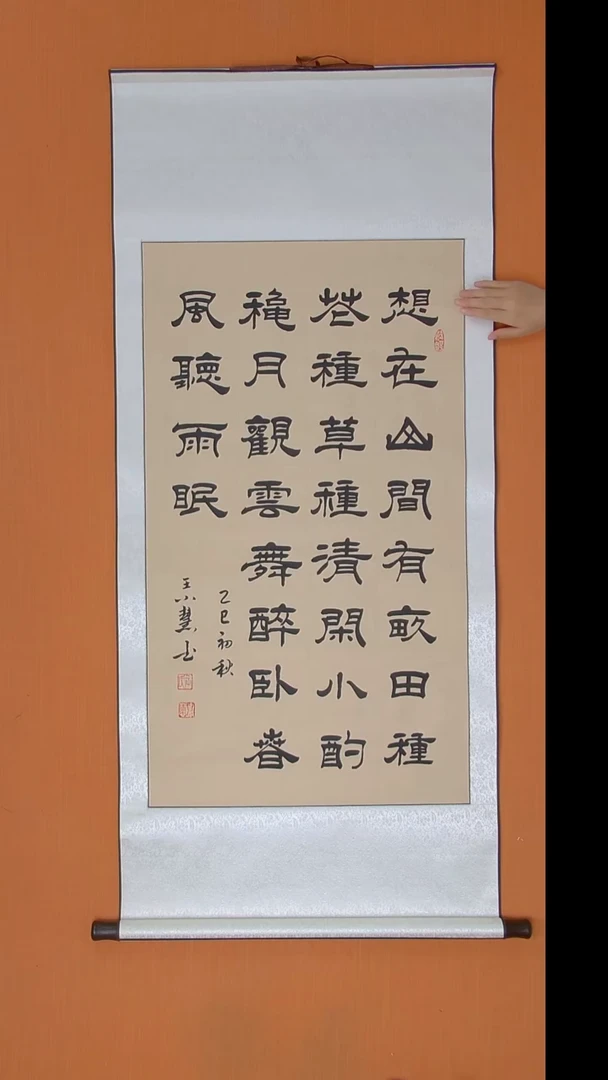 想在山間有畝田種
花種草種清閑小酌
穐月觀雲舞醉卧春
風聽雨眠
乙巳初秋
王小慧书